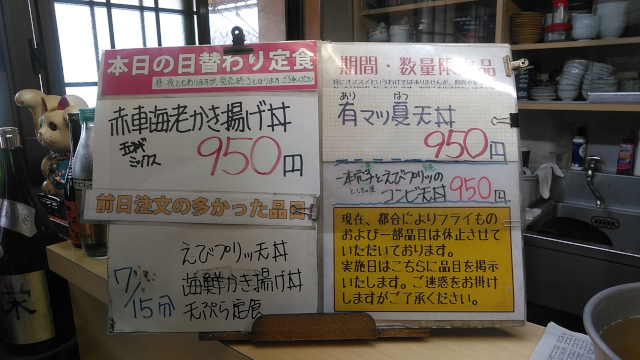 本日の日替わり定食
赤車海老かき揚げ丼
玉ネギ
ミックス
950円
前日注文の多かった品目
7/15分
えびプリッ天丼
海鮮かき揚げ丼
天ぷら定食
期間・数量限定品
あり
はつ
有マッ夏天丼
950円
えびプリッの
コンビ天丼 950円
現在、都合によりフライもの
および一部品目は休止させて
いただいております。
実施日はこちらに品目を掲示
いたします。ご迷惑をお掛け
しますがご了承ください。
栄